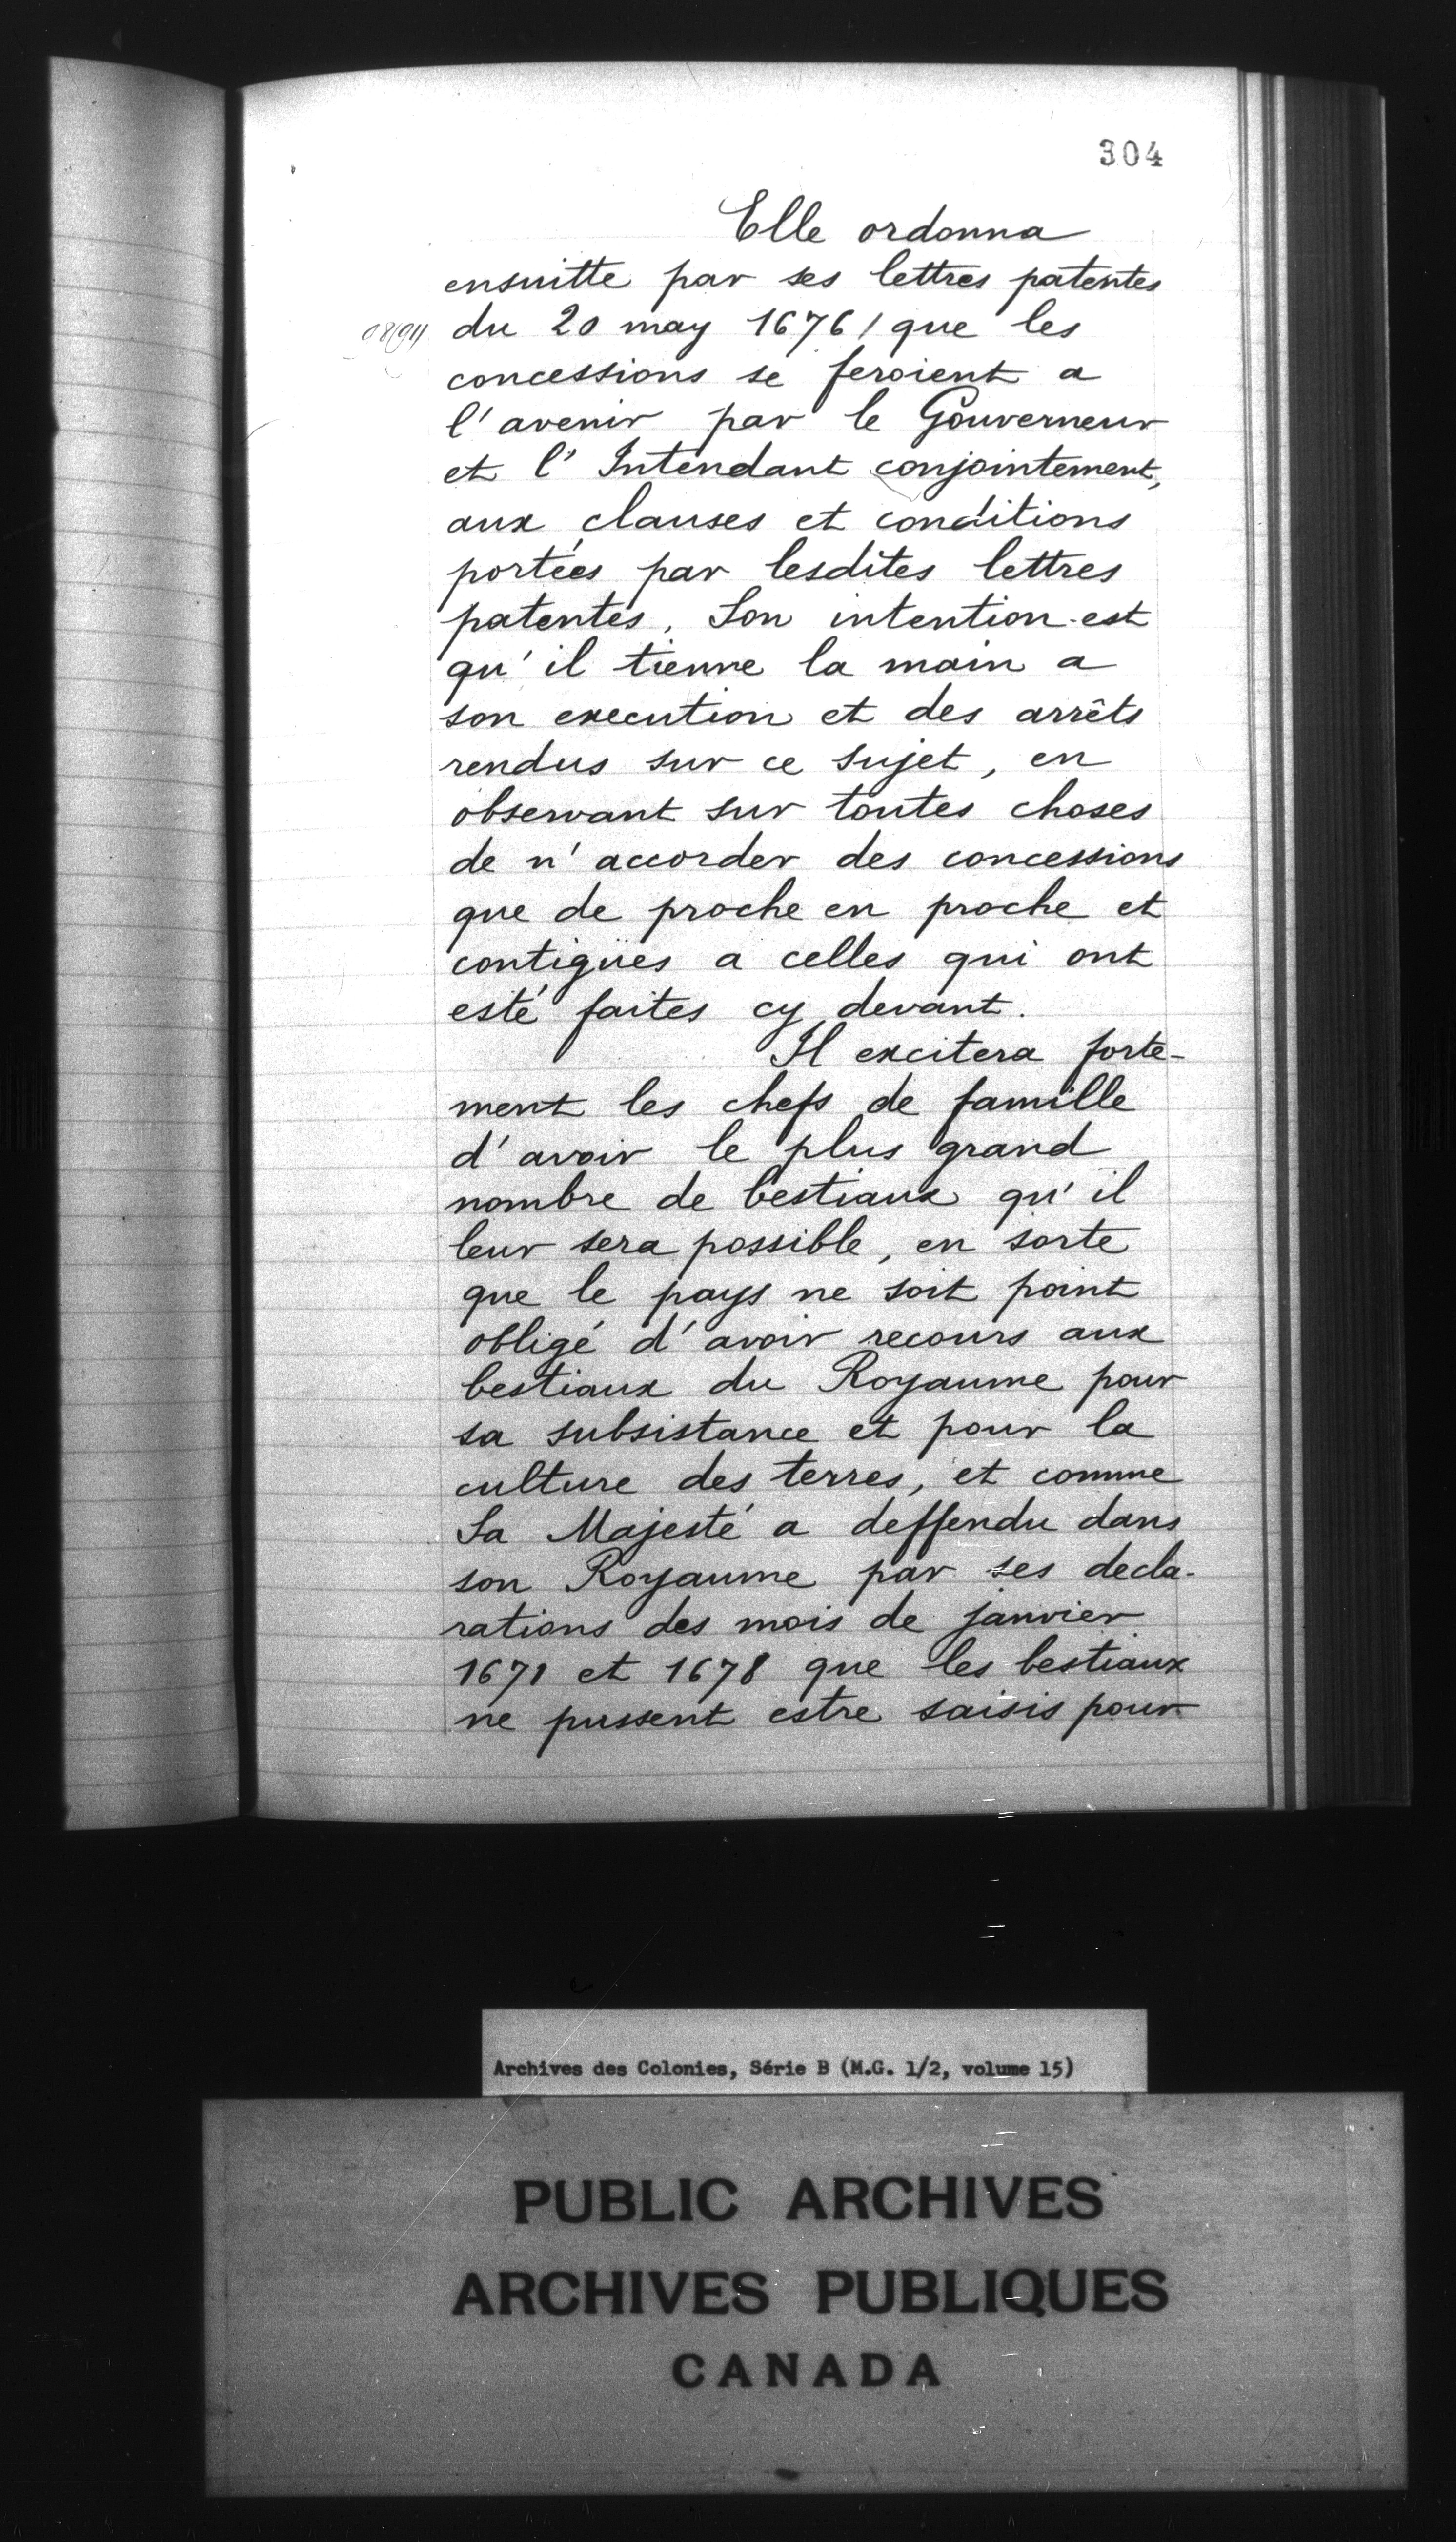 304
Elle ordonna
ensuitte par ses lettres patentes
du 20 may 1676/ que les
concessions se feroient a
l'avenir par le Gouverneur
et l'Intendant conjointement,
aux clauses et conditions
portées par lesdites lettres
patentes. Son intention est
qu'il tienne la main a
son execution et des arrêts
rendus sur ce sujet, en
observant sur toutes choses
de n'accorder des concessions
que de proche en proche et
contigües a celles qui ont
esté faites cy devant.
Il excitera forte-
ment les chefs de famille
d'avoir le plus grand
nombre de bestiaux qu'il
leur sera possible, en sorte
que le pays ne soit point
obligé d'avoir recours aux
bestiaux du Royaume pour
sa subsistance et pour la
culture des terres, et comme
Sa Majesté a deffendu dans
son Royaume par ses decla-
rations des mois de janvier
1671 et 1678 que les bestiaux
ne pussent estre saisis pour
Archives des Colonies, Série B (M.G. 1/2, volume 15)
PUBLIC ARCHIVES
ARCHIVES PUBLIQUES
CANADA